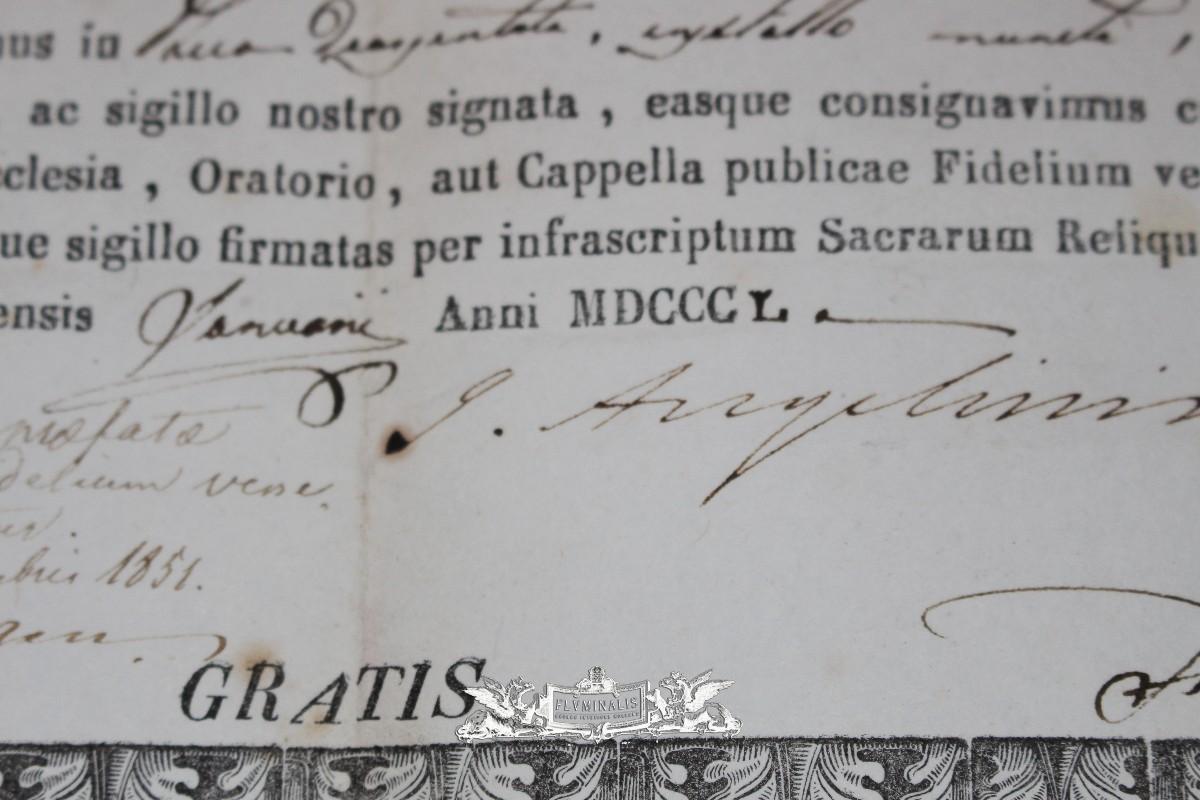 nus in theca ex argentata, crystallo munita,
ac sigillo nostro signata, easque consignavimus c
cclesia, Oratorio, aut Cappella publicae Fidelium ve
que sigillo firmatas per infrascriptum Sacrarum Reliqu
ensis Januarii Anni MDCCCL.
J. Angelini
præfatæ
delium vene.
tur.
bris 1851.
GRATIS
FLVMINALIS